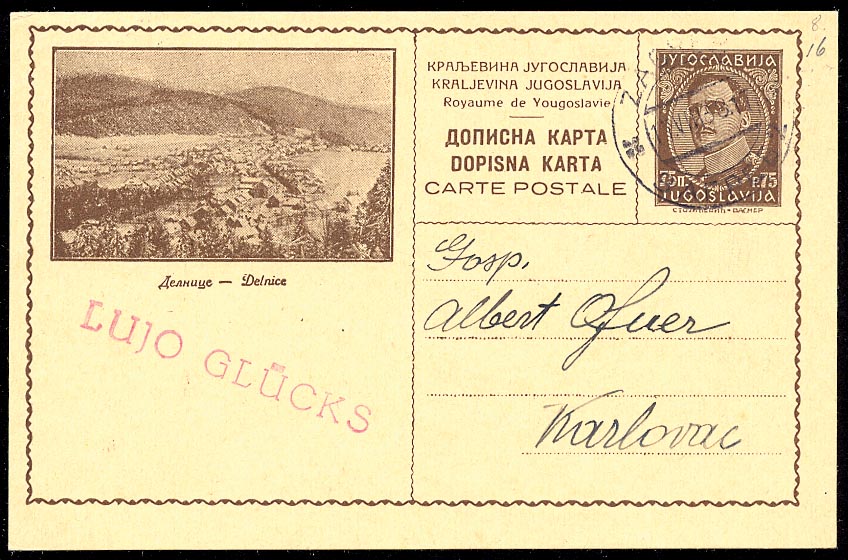 8.
16
КРАЉЕВИНА ЈУГОСЛАВИЈА
KRALJEVINA JUGOSLAVIJA
Royaume de Yougoslavie
ДОПИСНА КАРТА
DOPISNA KARTA
CARTE POSTALE
ЈУГОСЛАВИЈА
75п. p.75
JUGOSLAVIJA
Делнице — Delnice
LUJO GLÜCKS
Gosp.
Albert
Karlovac